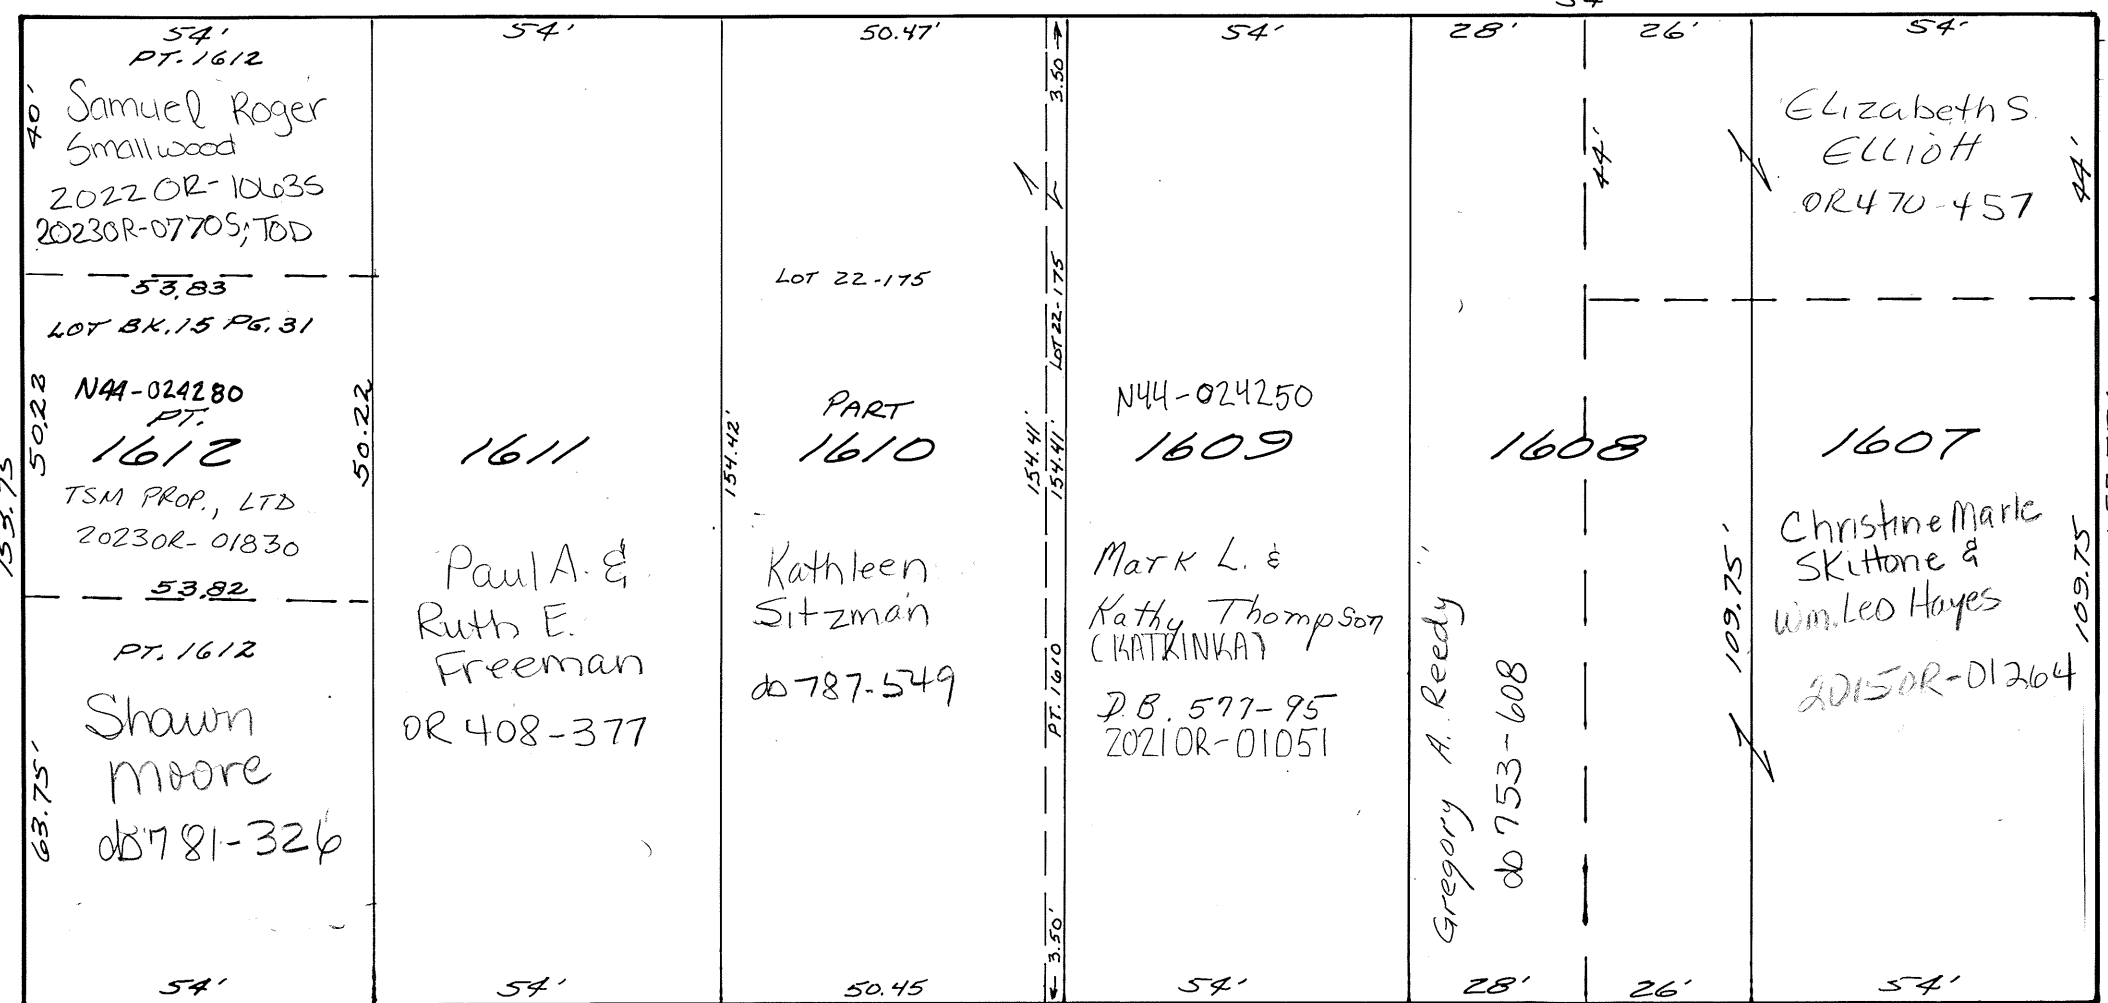 54'
54'
54'
50.47'
3.50
54'
28'
26'
54'
PT. 1612
40'
Samuel Roger
Smallwood
2022OR-10635
2023OR-07705; TOD
53.83
LOT BK. 15 PG. 31
50.23
50.22
N44-024280
PT.
1612
TSM PROP., LTD
2023OR-01830
53.82
PT. 1612
Shawn
Moore
db781-326
63.75'
54'
153.75
1611
Paul A. &
Ruth E.
Freeman
OR 408-377
54'
LOT 22-175
154.42'
PART
1610
Kathleen
Sitzman
db 787-549
50.45
154.41'
LOT 22-175
154.41'
PT. 1610
3.50'
N44-024250
1609
Mark L. &
Kathy Thompson
(KATRINKA)
D.B. 577-95
2021OR-01051
54'
1608
Gregory A. Reedy
db 753-608
28'
44'
109.75'
26'
Elizabeth S.
Elliott
OR 470-457
44'
1607
Christine Marie
Skittone &
Wm. Leo Hayes
2015OR-01264
109.75
54'